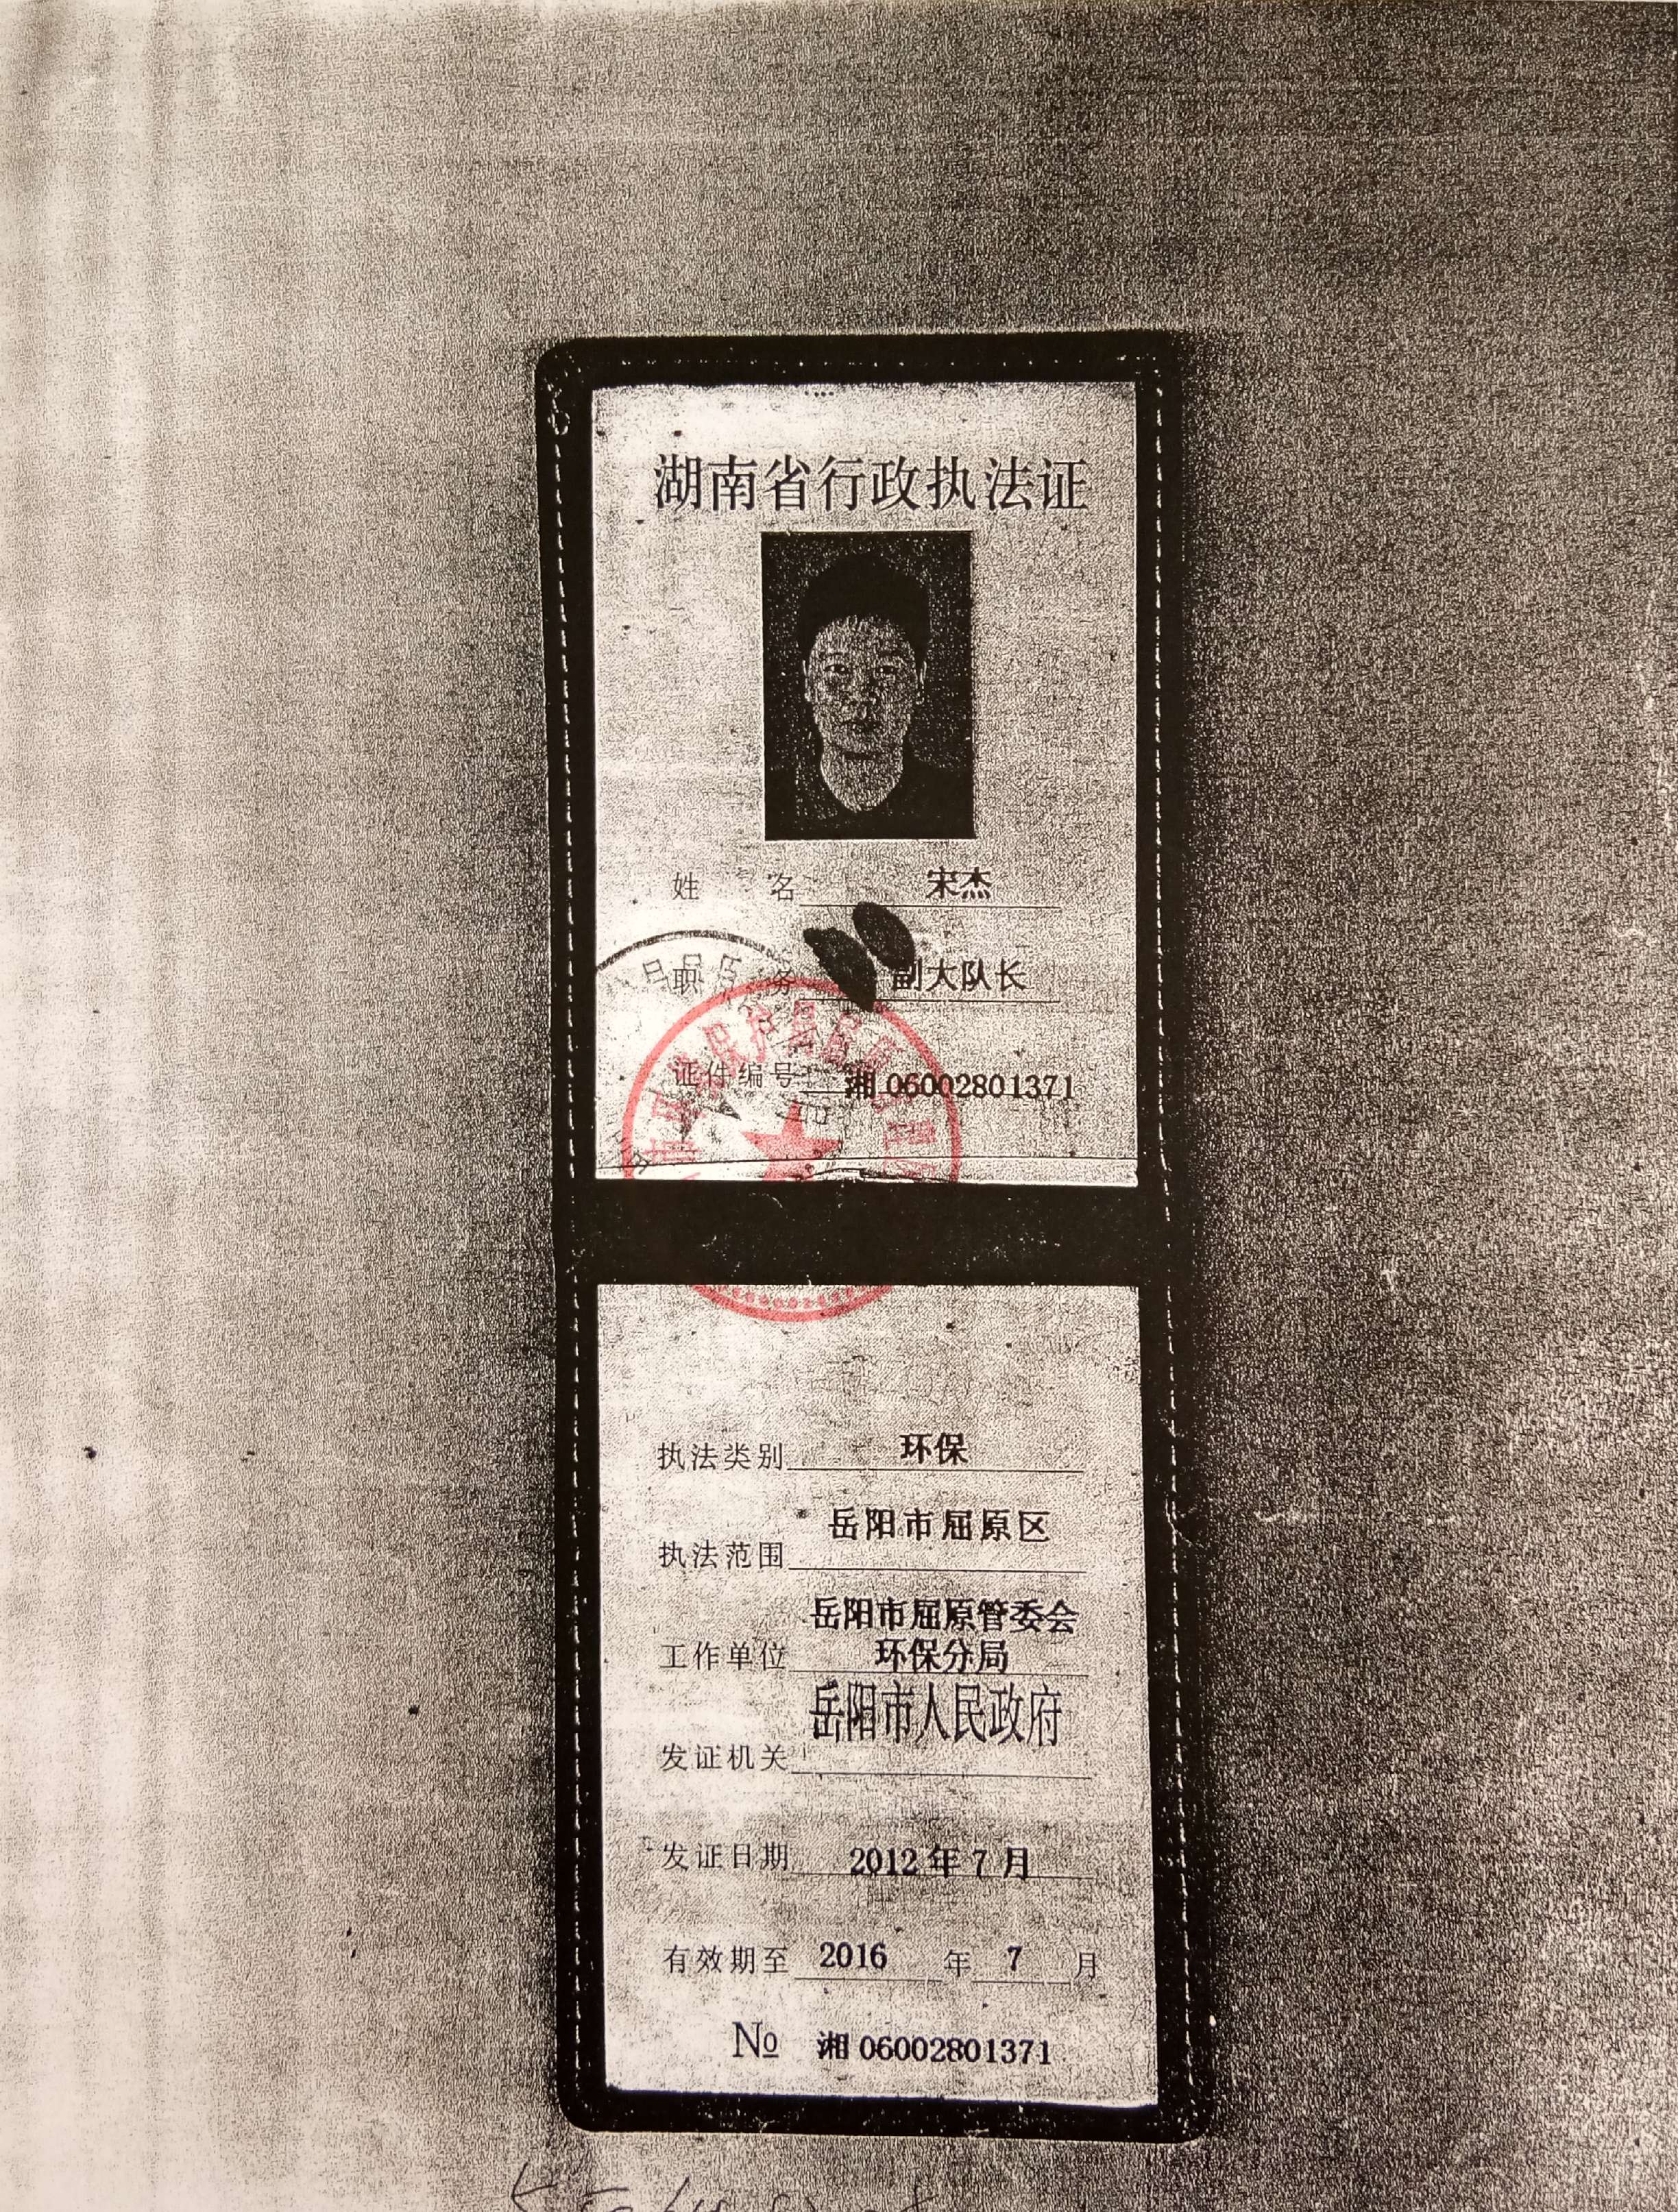 湖南省行政执法证
姓 名 宋杰
职 务 副大队长
证件编号 湘 06002801371
执法类别 环保
执法范围 岳阳市屈原区
岳阳市屈原管委会
工作单位 环保分局
岳阳市人民政府
发证机关
发证日期 2012 年 7 月
有效期至 2016 年 7 月
№ 湘 06002801371